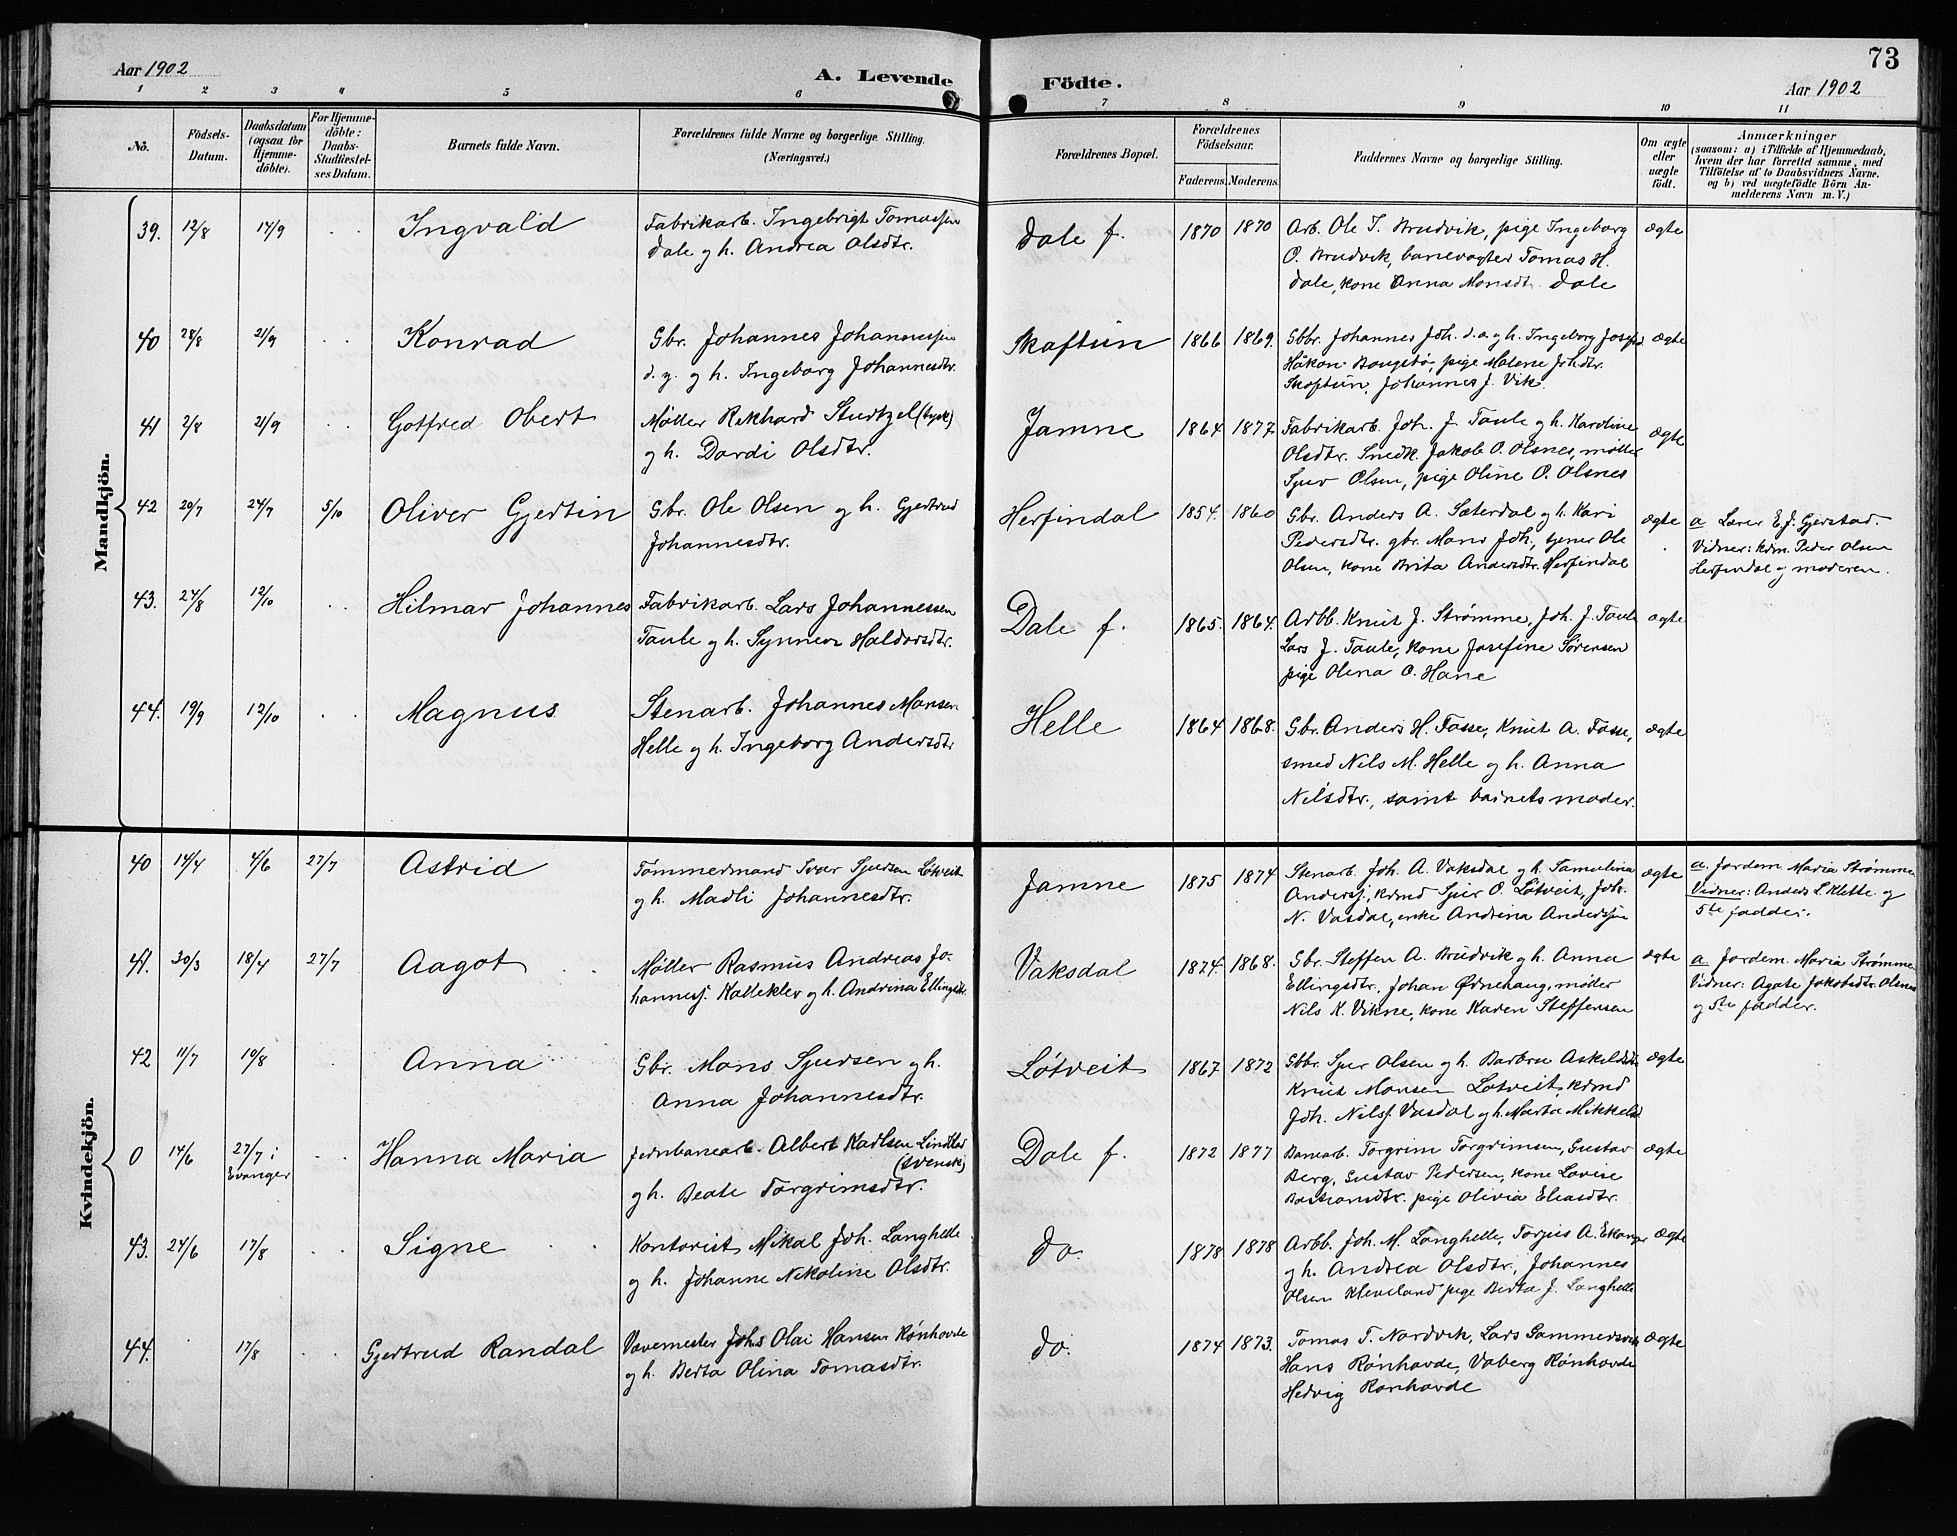 Aar 1902
A. Levende
Födte.
73
Aar 1902
1 2 3 4 5 6 7 8 9 10 11
No.
Födsels-
Datum.
Daabsdatum
(ogsaa for
Hjemme-
döbte).
For Hjemme-
döbte:
Daabs-
Stadfæstel-
ses Datum.
Barnets fulde Navn.
Forældrenes fulde Navne og borgerlige Stilling.
(Næringsvei.)
Forældrenes Bopæl.
Forældrenes
Födselsaar.
Faderens. Moderens.
Faddernes Navne og borgerlige Stilling.
Om ægte
eller
uægte
födt.
Anmærkninger
(saasom: a) i Tilfælde af Hjemmedaab,
hvem der har forrettet samme, med
Tilföielse af to Daabsvidners Navne.
og b) ved uægtefödte Börn An-
melderens Navn m. V.)
Mandkjön.
39. 12/8 14/9 Ingvald Fabrikarb. Ingebrigt Tomassen Dale f. 1870 1870 Arb. Ole T. Brudvik, pige Ingeborg ægte
Dale og h. Andrea Olsdtr. O. Brudvik, banevogter Tomas H.
Dale, kone Anna Monsdt. Dale
40 28/8 21/9 Konrad Gbr. Johannes Johannessen Skaftun 1866 1869. Gbbr. Johannes Joh. d.æ. og h. Ingeborg ægte
d. y. og h. Ingeborg Johannesdtr. Håkon Bougstø, pige Malene Johdtr.
Skaftun, Johannes J. Vik.
41 2/8 21/9 Gotfred Obert Møller Rikhard Sturtzel (tysk) Jamne 1864 1877 Fabrikarb. Joh. J. Taule og h. Karoline ægte
og h. Dordi Olsdtr. Olsdtr. Snedk. Jakob O. Olsnes, møller
Sjur Olsen, pige Oline O. Olsnes
42 20/7 24/7 5/10 Oliver Gjertin Gbr. Ole Olsen og h. Gjertrud Herfindal 1854. 1860 Gbr. Anders A. Sæterdal og h. Kari ægte a Lærer E. J. Gjerstad.
Johannesdtr. Pedersdtr. gbr. Mons Joh., tjener Ole Vidner: kdm. Peder Olsen
Olsen, kone Brita Andersdtr. Herfindal Herfindal og moderen.
43. 24/8 12/10 Hilmar Johannes Fabrikarb. Lars Johannessen Dale f. 1865. 1864. Arbb. Knut J. Strømme, Joh. J. Taule ægte
Taule og h. Synneva Haldorsdtr. Lars J. Taule, kone Josefine Sørensen
pige Olina O. Hane
44. 19/9 12/10 Magnus Stenarb. Johannes Monsen Helle 1864 1868. Gbr. Anders H. Fosse, Knut A. Fosse, ægte
Helle og h. Ingeborg Andersdtr smed Nils M. Helle og h. Anna
Nilsdtr., samt barnets moder.
Kvindekjön.
40 14/4 4/6 27/7 Astrid Tømmermand Ivar Sjursen Løtveit Jamne 1875 1874 Stenarb. Joh. A. Vaksdal og h. Samulina ægte a. Jordem. Maria Strømme
og h. Madli Johannesdtr. Andersj., kdmd Sjur O. Løtveit, Joh. Vidner: Anders L. Klette og
N. Vasdal, enke Andrina Andersjen 5te fadder.
41. 30/3 18/4 27/7 Aagot Møller Rasmus Andreas Jo- Vaksdal 1874. 1868. Gbr. Steffen A. Brudvik og h. Anna ægte a Jordem. Maria Strømme
hannesj. Kalleklev og h. Andrina Ellingsdtr. Ellingsdtr., Johan Ødnehaug, møller Vidner: Agate Jakobsdtr. Olsnes
Nils K. Vikne, kone Karen Steffensen og 5te fadder.
42 11/7 10/8 Anna Gbr. Mons Sjursen og h. Løtveit 1867 1872 Gbbr. Sjur Olsen og h. Barbru Askildsdtr ægte
Anna Johannesdtr. Knut Monsen Løtveit, kdmd
Joh. Nilsj. Vasdal og h. Marta Mikkelsd
0 14/6 27/7 i Hanna Maria Jernbanearb. Albert Karlsen Lindblad Dale f. 1872 1877 Banearb. Torgrim Torgrimsen, Gustav ægte
Evanger (svensk) Berg, Gustav Pedersen, kone Lovise
og h. Beate Torgrimsdtr. Bastiansdtr. pige Olivia Eliasdtr.
43. 24/6 17/8 Signe Kontorist Mikal Joh. Langhelle Do. 1878 1878 Arbb. Joh. M. Langhelle, Torgis A. Ekanger ægte
og h. Johanne Nikoline Olsdtr. og h. Andrea Olsdtr., Johannes
Olsen Kleveland pige Berta J. Langhelle
44. 17/8 Gjertrud Randal Vævemester Johs Olai Hansen Rønhovde Do. 1874 1873. Tomas T. Nordvik, Lars Sammersvik ægte
og h. Berta Olina Tomasdtr. Hans Rønhovde, Voberg Rønhovde
Hedvig Rønhovde